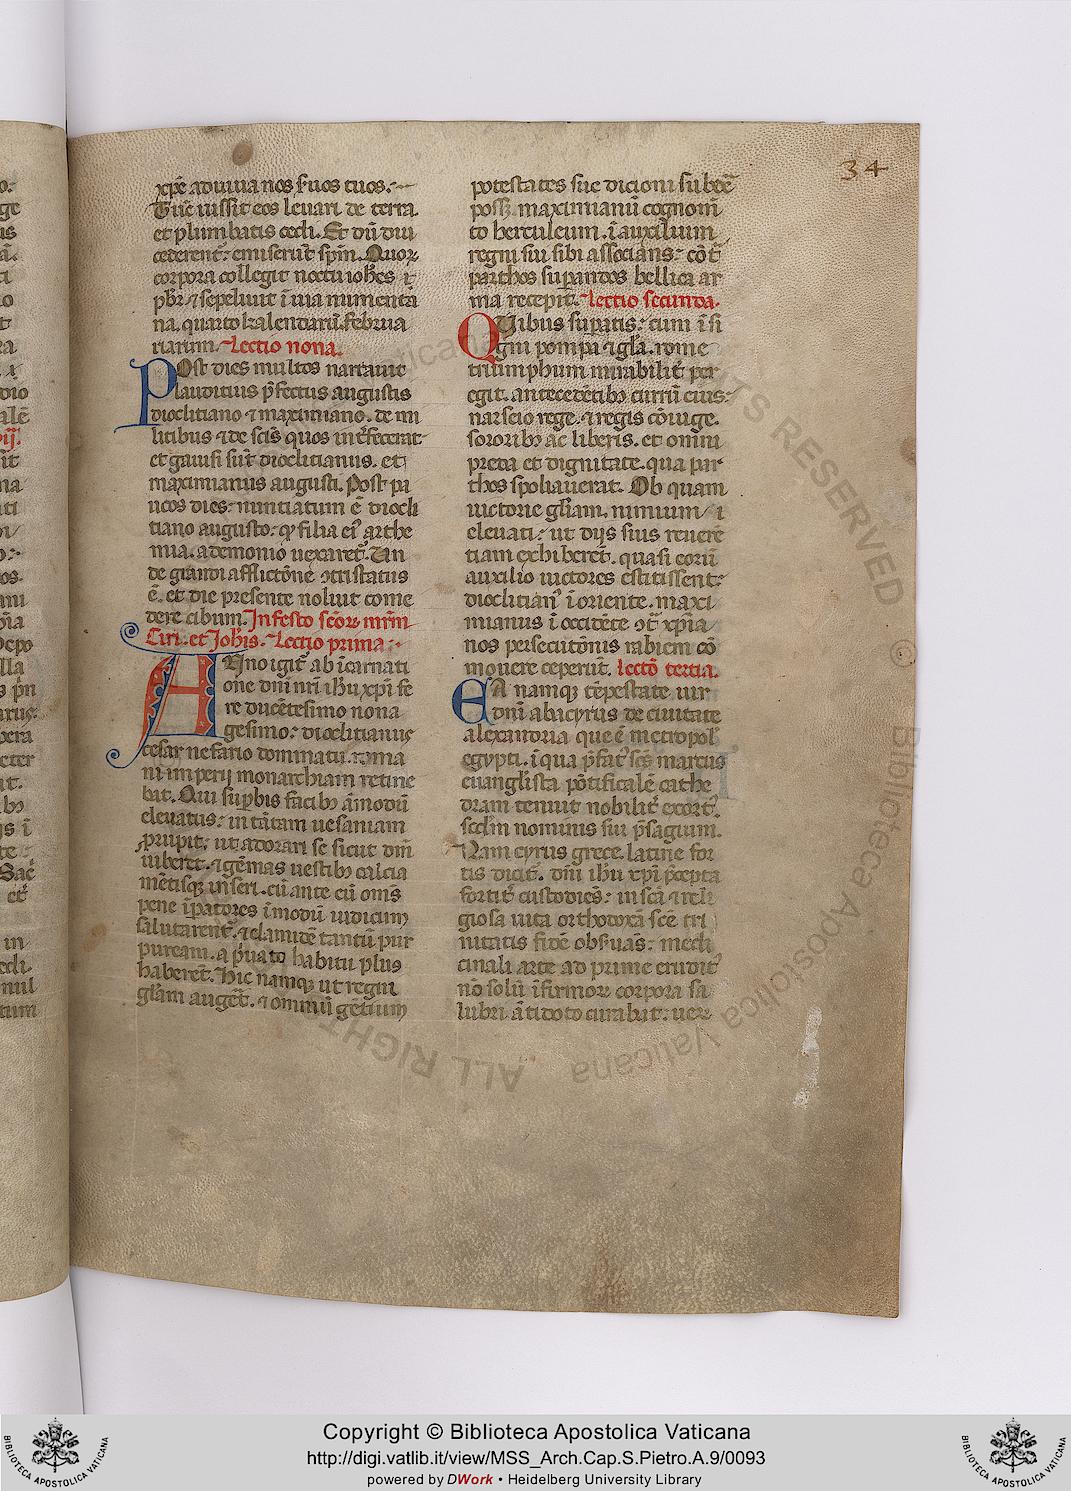 34
xp̄e adiuua nos ẜuos tuos.
Tūc iussit eos leuari de terra
et plumbatis cedi. Et dū diu
cederent̄: emiserūt sp̄m. Quoꝝ
corpora collegit noctu ioħes
pbr̄ ⁊ sepeliuit ī uia numenta
na. quarto kalendarū. februa
riarum. Lectio nona.
Post dies multos narrauit
plauditius p̄fectus augustis
dioclitiano ⁊ maximiano. de mi
litibus ⁊ de sc̄is quos int̄fecerat
et gauisi sūt dioclitianus. et
maximianus augusti. Post pa
ucos dies: nuntiatum ē diocli
tiano augusto: qꝫ filia eiꝰ arthe
mia. a demonio uexaret̄. Un
de grandi afflictōne ꝯtristatus
ē. et die presente noluit come
dere cibum. In festo sc̄oꝝ mr̄m
Ciri. et Joħis. Lectio prima:
Anno igit̄ ab īcarnati
one dn̄i nr̄i iħu xp̄i fe
re ducētesimo nona
gesimo: dioclitianus
cesar nefario dominatu. roma
ni imperij monarchiam retine
bat. Qui suꝑbis factibꝫ āmodū
eleuatus: in tātam uesaniam
ꝓrupit: ut adorari se sicut dm̄
iuberet. ⁊ gēmas uestibꝫ calcia
mētisqꝫ inseri. cū ante eū om̄s
pene īꝑatores ī modū iudicum
salutarent̄. ⁊ clamidē tantū pur
puream. a p̄uato habitu plus
haberet. Hic namqꝫ ut regni
gl̄iam auger̄et. ⁊ omniū gētium
potestates sue dicioni subdē
poss̄. maximianū cognom̄
to herculeum. ī auxilium
regni sui sibi associans: cōt̄
parthos suꝑandos bellica ar
ma recepit. Lectio secunda.
Quibus suꝑatis: cum īsi
gni pompa ⁊ gl̄a. rome
triumphum mirabilit̄ per
egit. antecedētibꝫ currū eius:
narseio rege. ⁊ regis cōiuge.
sororibꝫ ac liberis. et omni
preda et dignitate. qua par
thos spoliauerat. Ob quam
uictorie gl̄iam. nimium ī
eleuati: ut dijs suis reuerē
tiam exhiberēt. quasi eorū
auxilio uictores extitissent:
dioclitianꝰ ī oriente. maxi
mianus ī occidēte ꝯt̄ xp̄ia
nos persecutōnis rabiem cō
mouere ceperūt. Lectō tertia.
Ea namqꝫ tēpestate uir
dn̄i abacyrus de ciuitate
alexandria que ē metropolꝭ
egypti. ī qua p̄fatꝰ sc̄s marcus
euanglīsta pōtificalē cathe
dram tenuit nobilit̄ exortꝰ.
scd̄m nominis sui p̄sagium.
Nam cyrus grece. latine for
tis dicit̄. dn̄i iħu xp̄i p̄cepta
fortit̄ custodiēs: in sc̄a ⁊ reli
giosa uita orthodoxā sc̄e tri
nitatis fidē obseruās: medi
cinali arte ad prime eruditꝰ
no solū īfirmoꝝ corpora sa
lubri ātidoto curabat: ueꝝ
Copyright © Biblioteca Apostolica Vaticana
http://digi.vatlib.it/view/MSS_Arch.Cap.S.Pietro.A.9/0093
powered by DWork • Heidelberg University Library